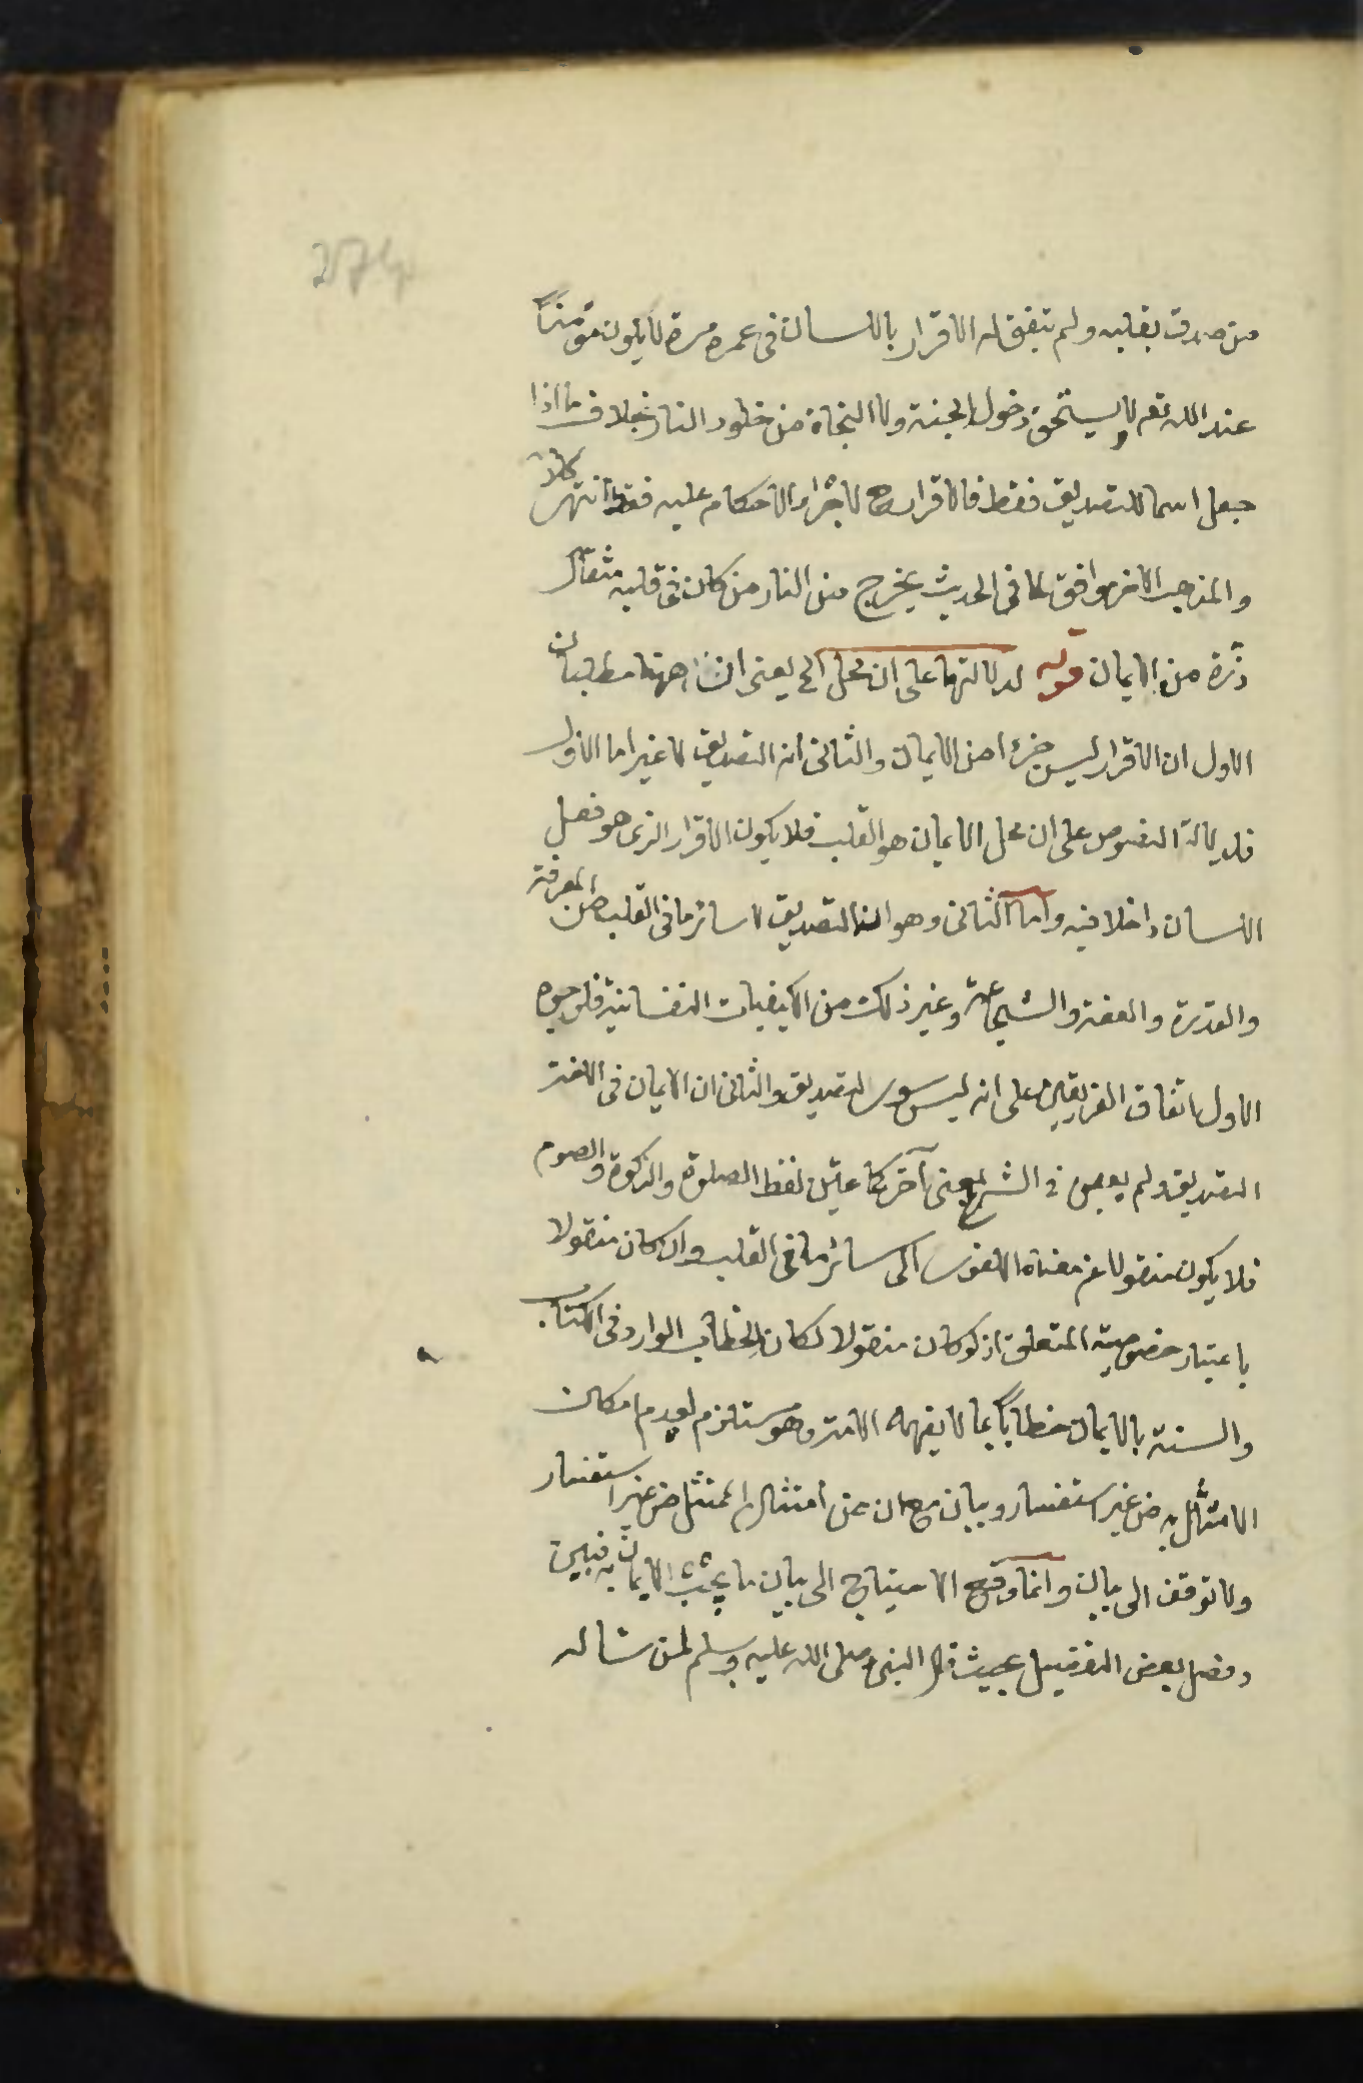 من صدق بقلبه ولم يتفق له الاقرار باللسان فى عمره مرة لا يكون مؤمنا
عند الله تعم ولا يستحق دخول الجنة ولا النجاة من خلود النار بخلاف ما اذا
جعل اسما للتصديق فقط فالاقرار ح لاجراء الاحكام عليه فقط انتهى كلامه
والمذهب الاخر موافق لما فى الحديث يخرج من النار من كان فى قلبه مثقال
ذرة من الايمان قوله لدلالتها على ان محل الخ يعنى ان ههنا مطلبان
الاول ان الاقرار ليس جزءا من الايمان والثانى انه التصديق لا غير اما الاول
فلدلالة النصوص على ان محل الايمان هو القلب فلا يكون الاقرار الذى هو فعل
اللسان داخلا فيه واما الثانى وهو انه التصديق لا سائر ما فى القلب من المعرفة
والقدرة والعفة والشجاعة وغير ذلك من الكيفيات النفسانية فلوجوه
الاول اتفاق الفريقين على انه ليس سوى التصديق والثانى ان الايمان فى اللغة
التصديق ولم يعين فى الشرع لمعنى آخر كما عين لفظ الصلوة والزكوة والصوم
فلا يكون منقولا عن معناه اللغوى الى سائر ما فى القلب وان كان منقولا
باعتبار خصوصية المتعلق اذ لو كان منقولا لكان الخطاب الوارد فى الكتاب
والسنة بالايمان خطابا بما لا يفهمه الامة وهو مستلزم لعدم امكان
الامتثال به من غير استفسار وبيان مع ان من امتثال الممتثل من غير استفسار
ولا توقف الى بيان وانما وقع الاحتياج الى بيان ما يجب الايمان به فبين
وفصل بعض التفصيل بحيث قال النبى صلى الله عليه وسلم لمن سئاله